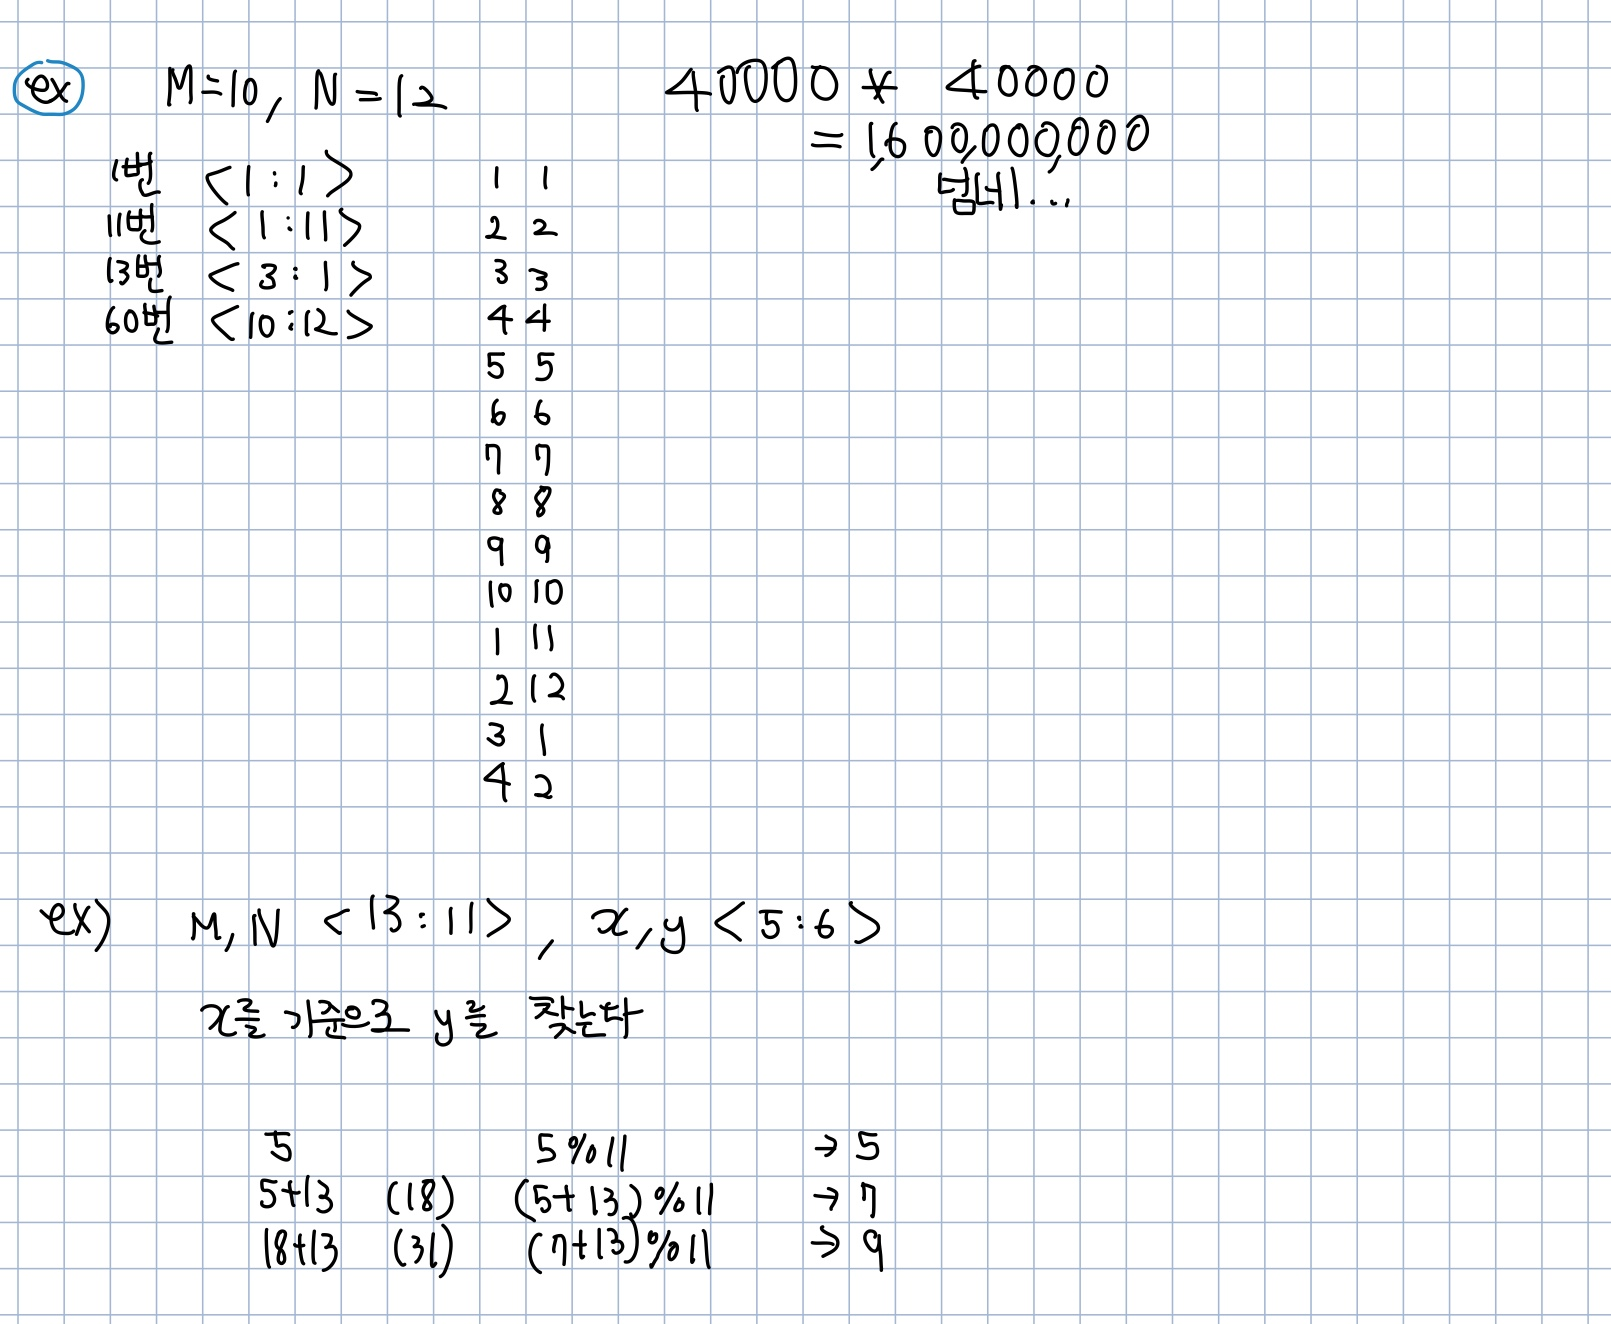 ex M=10, N=12
1번 <1:1>
11번 <1:11>
13번 <3:1>
60번 <10:12>
1 1
2 2
3 3
4 4
5 5
6 6
7 7
8 8
9 9
10 10
1 11
2 12
3 1
4 2
40000 * 40000
= 1,600,000,000
넘네...
ex) M,N <13:11>, x,y <5:6>
x를 기준으로 y를 찾는다
5 5%11 → 5
5+13 (18) (5+13)%11 → 7
18+13 (31) (7+13)%11 → 9